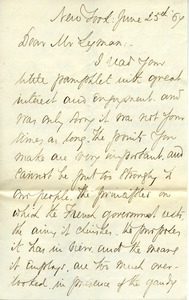 New York. June 25th 69
Dear Mr Lyman.
I read your
little pamphlet with great
interest and enjoyment. and
was only sorry it was not four
times as long. The points you
make are very important. and
cannot be put too strongly to
our people. The principles on
which the French government acts
the aims it cherishes. the purposes
it has in view. and the means
it employs. are too much over-
looked, in presence of the gaudy